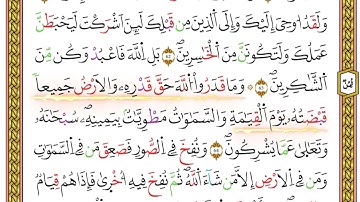 وَلَقَدْ اُوحِيَ اِلَيْكَ وَاِلَى الَّذِينَ مِنْ قَبْلِكَ لَئِنْ اَشْرَكْتَ لَيَحْبَطَنَّ
عَمَلُكَ وَلَتَكُونَنَّ مِنَ الْخَاسِرِينَ ﴿٦٥﴾ بَلِ اللّٰهَ فَاعْبُدْ وَكُنْ مِنَ
الشَّاكِرِينَ ﴿٦٦﴾ وَمَا قَدَرُوا اللّٰهَ حَقَّ قَدْرِهِ وَالْاَرْضُ جَمِيعاً
قَبْضَتُهُ يَوْمَ الْقِيٰمَةِ وَالسَّمٰوَاتُ مَطْوِيَّاتٌ بِيَمِينِهِ سُبْحَانَهُ
وَتَعَالٰى عَمَّا يُشْرِكُونَ ﴿٦٧﴾ وَنُفِخَ فِي الصُّورِ فَصَعِقَ مَنْ فِي السَّمٰوَاتِ
وَمَنْ فِي الْاَرْضِ اِلَّا مَنْ شَاءَ اللّٰهُ ثُمَّ نُفِخَ فِيهِ اُخْرٰى فَاِذَا هُمْ قِيَامٌ